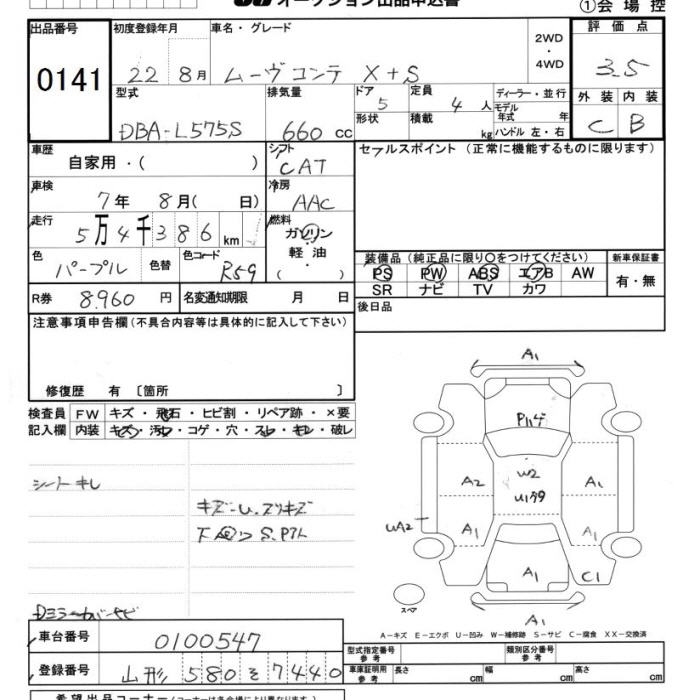 オークション出品申込書
①会場控
出品番号 初度登録年月 車名・グレード 2WD ・ 4WD 評価点
0141 22 8月 ムーヴコンテ X+S 3.5
型式 排気量 ドア 5 定員 4人 ディーラー・並行 外装 内装
DBA-L575S 660cc 形状 積載 kg モデル年式 年 ハンドル 左・右 C B
車歴 シフト セールスポイント(正常に機能するものに限ります)
自家用・( ) CAT
車検 7年 8月( 日) 冷房 AAC
走行 5万4千386km 燃料 ガソリン
軽油
( )
色 パープル 色替 色コード R59
装備品(純正品に限り〇をつけてください) 新車保証書
PS PW ABS エアB AW 有・無
SR ナビ TV カワ
R券 8,960円 名変通知期限 月 日 後日品
注意事項申告欄(不具合内容等は具体的に記入して下さい)
修復歴 有 〔箇所 〕
検査員 FW キズ・飛石・ヒビ割・リペア跡・×要
記入欄 内装 キズ・汚れ・コゲ・穴・スレ・キレ・破レ
シートキレ
キズ・U.スリキズ
A1
Pハゲ
A2 W2 A1
U1 99
UA2 A1 A1
A1 C1
スペア
A1
A-キズ E-エクボ U-凹み W-補修跡 S-サビ C-腐食 XX-交換済
車台番号 0100547
登録番号 山形 580 そ 7440
型式指定番号 参考 類別区分番号 参考
車庫証明用 参考 長さ cm 幅 cm 高さ cm
希望出品コーナー